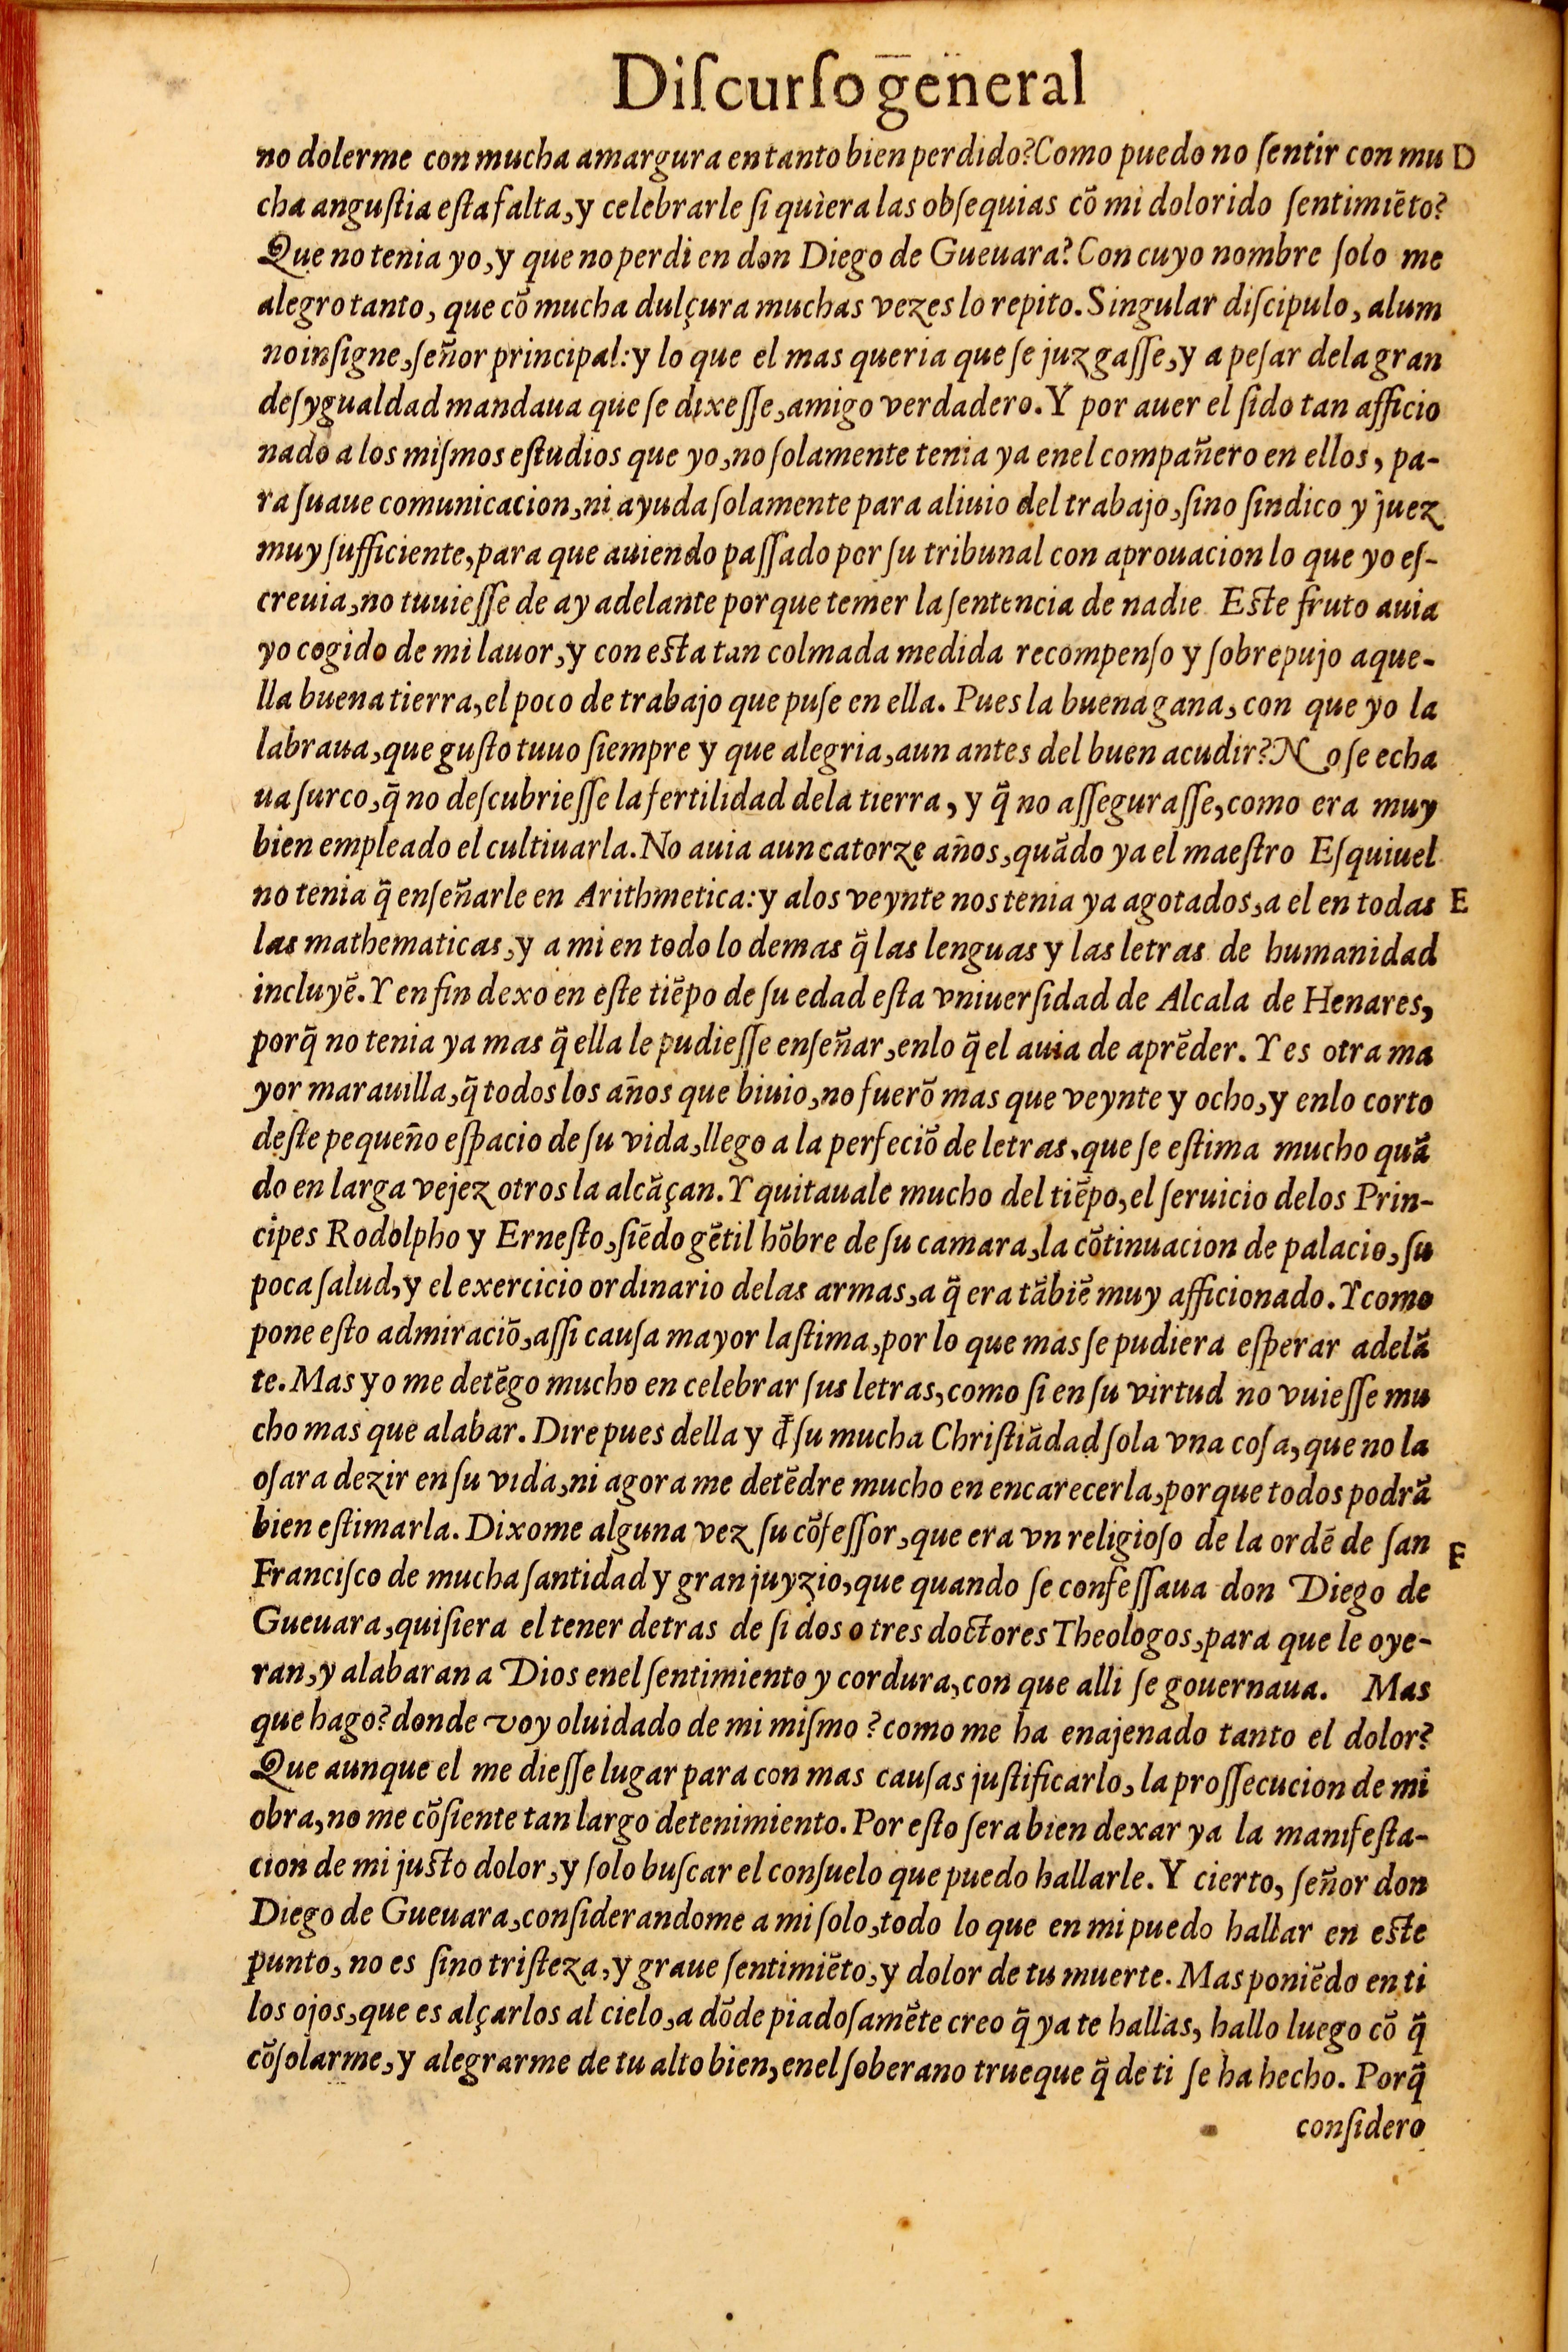 Diſcurſo general
no dolerme con mucha amargura en tanto bien perdido? Como puedo no ſentir con mu D
cha anguſtia eſta falta, y celebrarle ſi quiera las obſequias cõ mi dolorido ſentimiẽto?
Que no tenia yo, y que no perdi en don Diego de Gueuara? Con cuyo nombre ſolo me
alegro tanto, que cõ mucha dulçura muchas vezes lo repito. Singular diſcipulo, alum
no inſigne, ſeñor principal: y lo que el mas queria que ſe juzgaſſe, y a peſar dela gran
deſygualdad mandaua que ſe dixeſſe, amigo verdadero. Y por auer el ſido tan afficio
nado a los miſmos eſtudios que yo, no ſolamente tenia ya enel compañero en ellos, pa-
ra ſuaue comunicacion, ni ayuda ſolamente para aliuio del trabajo, ſino ſindico y juez
muy ſufficiente, para que auiendo paſſado por ſu tribunal con aprouacion lo que yo eſ-
creuia, no tuuieſſe de ay adelante porque temer la ſentencia de nadie Eſte fruto auia
yo cogido de mi lauor, y con eſta tan colmada medida recompenſo y ſobrepujo aque-
lla buena tierra, el poco de trabajo que puſe en ella. Pues la buena gana, con que yo la
labraua, que guſto tuuo ſiempre y que alegria, aun antes del buen acudir? No ſe echa
ua ſurco, q̃ no deſcubrieſſe la fertilidad dela tierra, y q̃ no aſſeguraſſe, como era muy
bien empleado el cultiuarla. No auia aun catorze años, quãdo ya el maeſtro Eſquiuel
no tenia q̃ enſeñarle en Arithmetica: y alos veynte nos tenia ya agotados, a el en todas E
las mathematicas, y a mi en todo lo demas q̃ las lenguas y las letras de humanidad
incluyẽ. Y en fin dexo en eſte tiẽpo de ſu edad eſta vniuerſidad de Alcala de Henares,
porq̃ no tenia ya mas q̃ ella le pudieſſe enſeñar, enlo q̃ el auia de aprẽder. Y es otra ma
yor marauilla, q̃ todos los años que biuio, no fuerõ mas que veynte y ocho, y enlo corto
deſte pequeño eſpacio de ſu vida, llego a la perfeciõ de letras, que ſe eſtima mucho quã
do en larga vejez otros la alcãçan. Y quitauale mucho del tiẽpo, el ſeruicio delos Prin-
cipes Rodolpho y Erneſto, ſiẽdo gẽtil hõbre de ſu camara, la cõtinuacion de palacio, ſu
poca ſalud, y el exercicio ordinario delas armas, a q̃ era tãbiẽ muy afficionado. Y como
pone eſto admiraciõ, aſſi cauſa mayor laſtima, por lo que mas ſe pudiera eſperar adelã
te. Mas yo me detẽgo mucho en celebrar ſus letras, como ſi en ſu virtud no vuieſſe mu
cho mas que alabar. Dire pues della y đ ſu mucha Chriſtiãdad ſola vna coſa, que no la
oſara dezir en ſu vida, ni agora me detẽdre mucho en encarecerla, porque todos podrã
bien eſtimarla. Dixome alguna vez ſu cõfeſſor, que era vn religioſo de la ordẽ de ſan F
Franciſco de mucha ſantidad y gran juyzio, que quando ſe confeſſaua don Diego de
Gueuara, quiſiera el tener detras de ſi dos o tres doctores Theologos, para que le oye-
ran, y alabaran a Dios enel ſentimiento y cordura, con que alli ſe gouernaua. Mas
que hago? donde voy oluidado de mi miſmo? como me ha enajenado tanto el dolor?
Que aunque el me dieſſe lugar para con mas cauſas juſtificarlo, la proſſecucion de mi
obra, no me cõſiente tan largo detenimiento. Por eſto ſera bien dexar ya la manifeſta-
cion de mi juſto dolor, y ſolo buſcar el conſuelo que puedo hallarle. Y cierto, ſeñor don
Diego de Gueuara, conſiderandome a mi ſolo, todo lo que en mi puedo hallar en eſte
punto, no es ſino triſteza, y graue ſentimiẽto, y dolor de tu muerte. Mas poniẽdo en ti
los ojos, que es alçarlos al cielo, a dõde piadoſamẽte creo q̃ ya te hallas, hallo luego cõ q̃
cõſolarme, y alegrarme de tu alto bien, enel ſoberano trueque q̃ de ti ſe ha hecho. Porq̃
conſidero